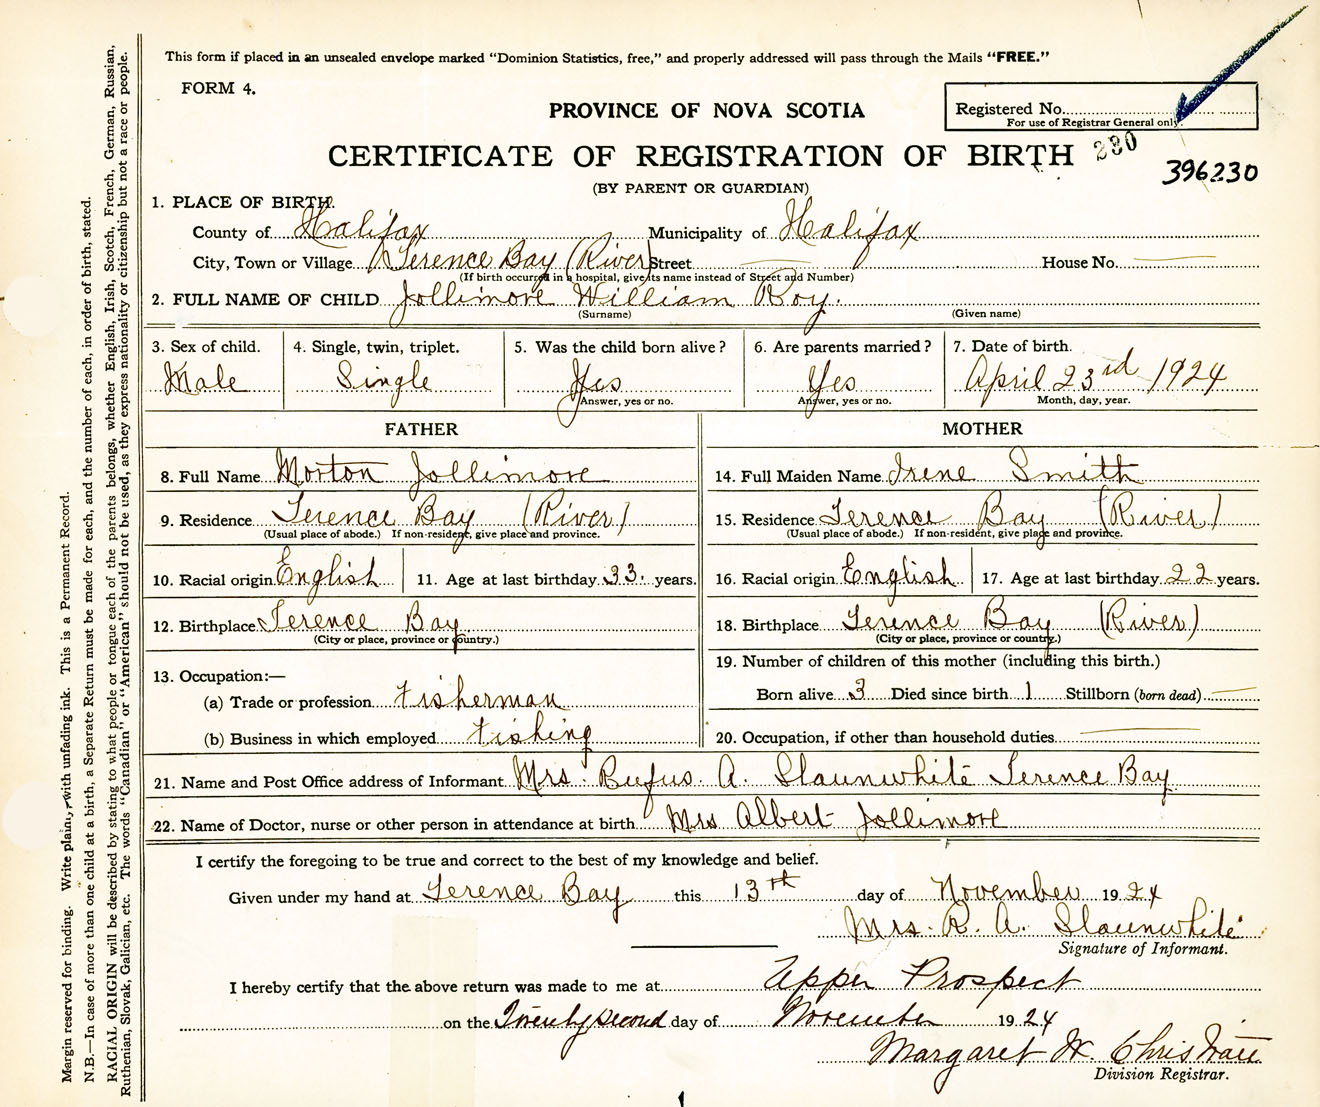 This form if placed in an unsealed envelope marked "Dominion Statistics, free," and properly addressed will pass through the Mails "FREE."
FORM 4.
Registered No.
For use of Registrar General only.
PROVINCE OF NOVA SCOTIA
CERTIFICATE OF REGISTRATION OF BIRTH
230
396230
(BY PARENT OR GUARDIAN)
1. PLACE OF BIRTH.
County of Halifax Municipality of Halifax
City, Town or Village Terence Bay (River) Street House No.
(If birth occurred in a hospital, give its name instead of Street and Number)
2. FULL NAME OF CHILD Jollimore William Roy.
(Surname) (Given name)
3. Sex of child. 4. Single, twin, triplet. 5. Was the child born alive? 6. Are parents married? 7. Date of birth.
Male Single Yes Yes April 23rd 1924
Answer, yes or no. Answer, yes or no. Month, day, year.
FATHER MOTHER
8. Full Name Morton Jollimore 14. Full Maiden Name Irene Smith
9. Residence Terence Bay (River) 15. Residence Terence Bay (River)
(Usual place of abode.) If non-resident, give place and province. (Usual place of abode.) If non-resident, give place and province.
10. Racial origin English 11. Age at last birthday 33. years. 16. Racial origin English 17. Age at last birthday 22 years.
12. Birthplace Terence Bay 18. Birthplace Terence Bay (River)
(City or place, province or country.) (City or place, province or country.)
13. Occupation:— 19. Number of children of this mother (including this birth.)
(a) Trade or profession Fisherman Born alive 3 Died since birth 1 Stillborn (born dead)
(b) Business in which employed Fishing 20. Occupation, if other than household duties
21. Name and Post Office address of Informant Mrs. Rufus. A. Slaunwhite Terence Bay
22. Name of Doctor, nurse or other person in attendance at birth Mrs Albert Jollimore
I certify the foregoing to be true and correct to the best of my knowledge and belief.
Given under my hand at Terence Bay this 13th day of November 1924
Mrs. R. A. Slaunwhite
Signature of Informant.
I hereby certify that the above return was made to me at Upper Prospect
on the Twenty second day of November 1924
Margaret W. Christian
Division Registrar.
Margin reserved for binding. Write plain, with unfading ink. This is a Permanent Record.
N.B.—In case of more than one child at a birth, a Separate Return must be made for each, and the number of each, in order of birth, stated.
RACIAL ORIGIN will be described by stating to what people or tongue each of the parents belongs, whether English, Irish, Scotch, French, German, Russian,
Ruthenian, Slovak, Galician, etc. The words "Canadian" or "American" should not be used, as they express nationality or citizenship but not a race or people.